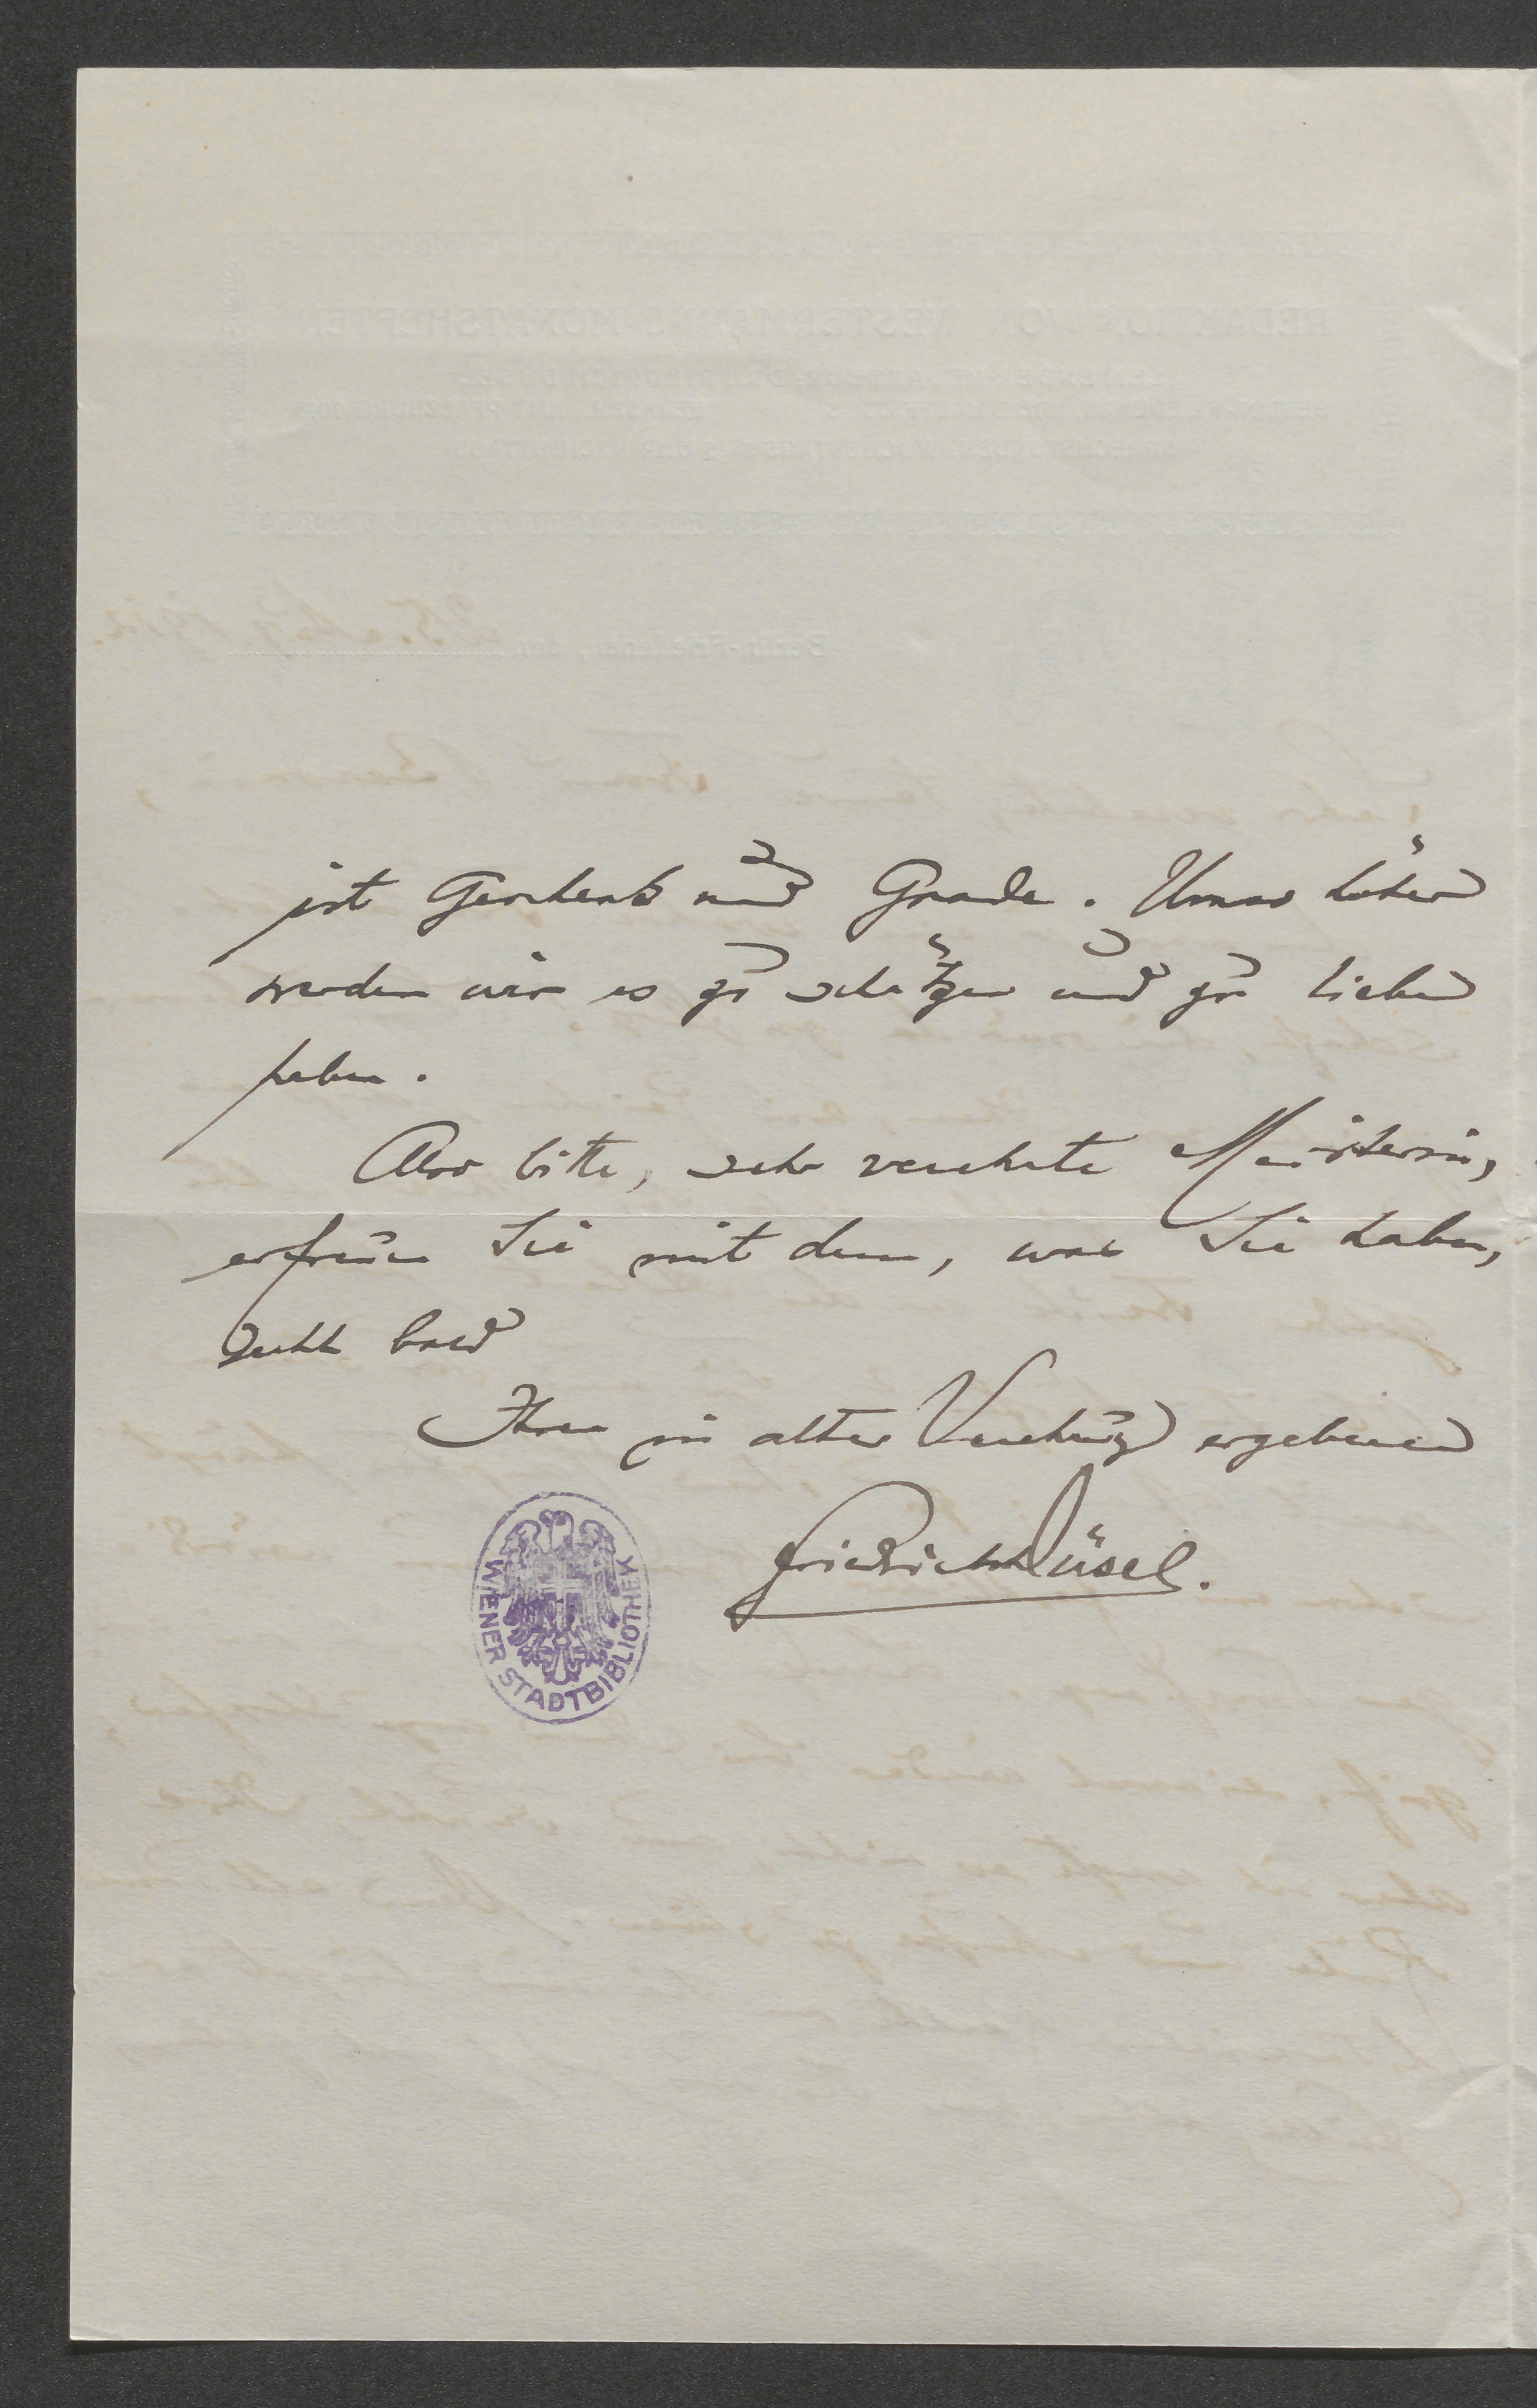 ist Geschenk und Gnade. Umso höher
werden wir es zu schätzen und zu lieben
haben.
Also bitte, sehr verehrte Meisterin,
erfreuen Sie mit dem, was Sie haben,
recht bald
Ihren in alter Verehrung ergebenen
Friedrich Düsel.
WIENER STADTBIBLIOTHEK